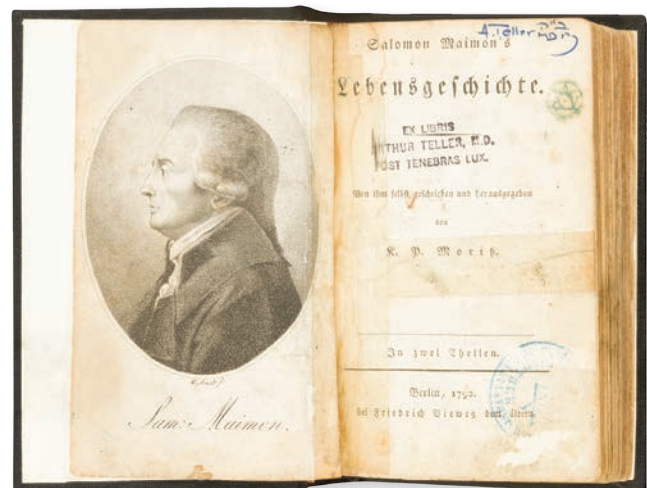 Sam: Maimon.
A. Teller
Salomon Maimon's
Lebensgeschichte.
EX LIBRIS
ARTHUR TELLER, M.D.
POST TENEBRAS LUX.
Von ihm selbst geschrieben und herausgegeben
von
K. P. Moritz.
In zwei Theilen.
Berlin, 1792.
bei Friedrich Vieweg dem ältern